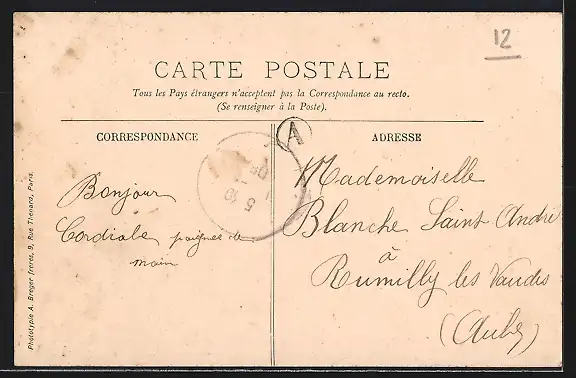 12
CARTE POSTALE
Tous les Pays étrangers n'acceptent pas la Correspondance au recto.
(Se renseigner à la Poste).
CORRESPONDANCE
ADRESSE
A
Bonjour
Cordiale poignée de
main
Mademoiselle
Blanche Saint André
à
Rumilly les Vaudes
(Aube)
Phototypie A. Breger frères, 9, Rue Thenard, Paris.